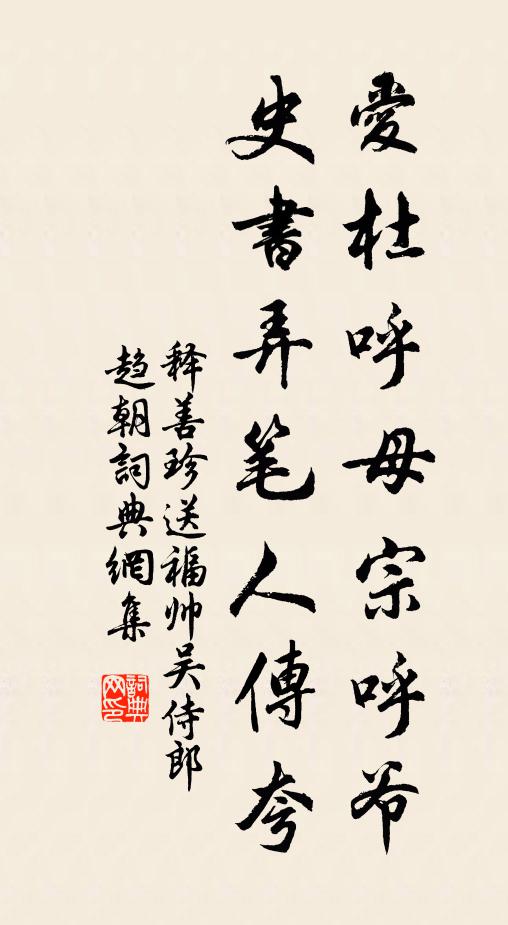 愛杜呼母宗呼爷
史書弄笔人傳夸
释善珍送福帅吴侍郎
趙朝詞典網集
詞典网印